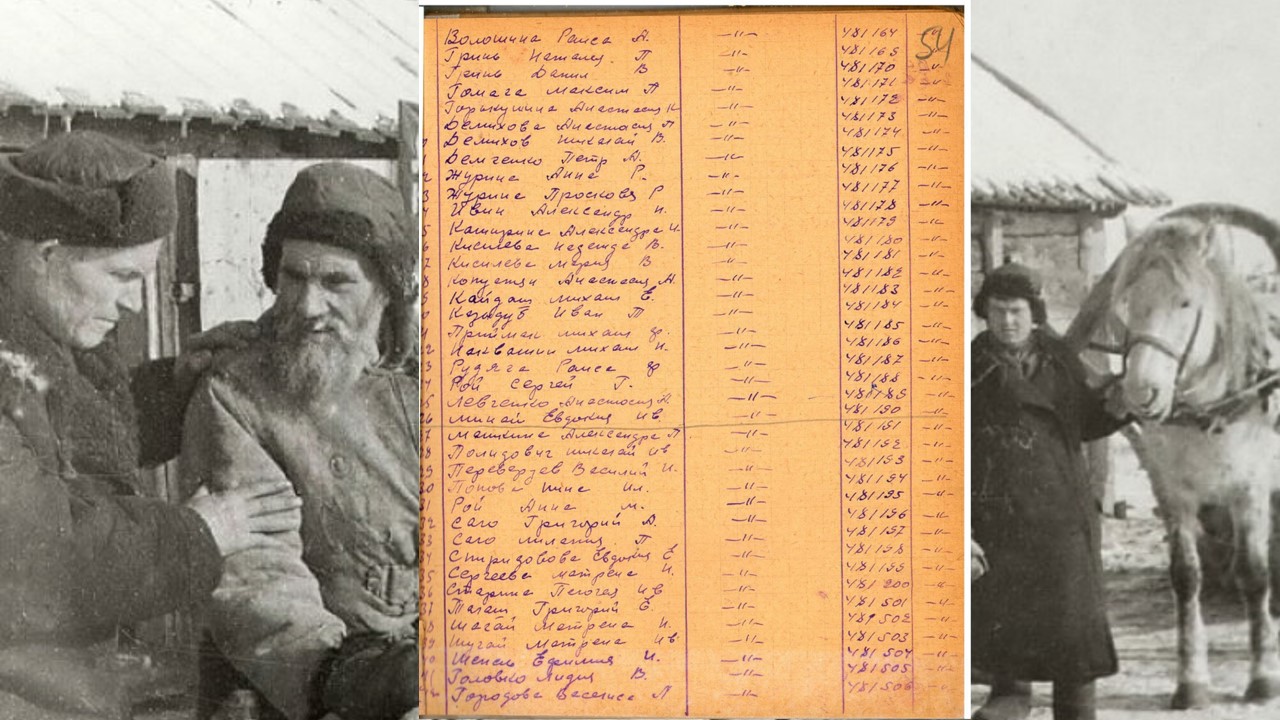 54
Волошина Раиса А. —"— 481164
Гринь Наталия П —"— 481165
Гринь Данил В —"— 481170
Гомага Максим П —"— 481171
Горькушина Анастасия —"— 481172
Демихова Анастасия П —"— 481173
Демихов Николай В. —"— 481174
Демченко Петр А. —"— 481175
Журина Анна Р. —"— 481176
Журина Просковя Р —"— 481177
Ивин Александр И. —"— 481178
Каширина Александра И. —"— 481179
Кисилева Надежда В. —"— 481180
Кисилева Мария В —"— 481181
Анастасия А. —"— 481182
Кайдаш Михаил Е. —"— 481183
Козидуб Иван П —"— 481184
Прийман Михаил Ф. —"— 481185
Михаил И. —"— 481186
Рудяга Раиса Ф —"— 481187
Рой Сергей Г. —"— 481188
Левченко Анастасия —"— 481189
Евдокия Ив. —"— 481190
Машкина Александра П —"— 481191
Полидович Николай Ив —"— 481192
Переверзев Василий И. —"— 481193
Попова Нина Ил. —"— 481194
Рой Анна М. —"— 481195
Саго Григорий А. —"— 481196
Саго Милания П —"— 481197
Спиридовова Евдокия Е —"— 481198
Сергеева Матрена И. —"— 481199
Старина Пелагея Ив —"— 481200
Григорий Е. —"— 481501
Шагай Матрена И. —"— 481502
Шугай Матрена Ив —"— 481503
Ефимия И. —"— 481504
Головко Лидия В. —"— 481505
Городова Василиса П —"— 481506